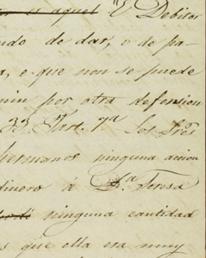 es aquel el Debitor
ndo de dar, o de pa-
a, o que non se puede
nin por otra defension
hermanos ninguna accion
dinero á D.ª Teresa
ninguna cantidad
s que ella era muy